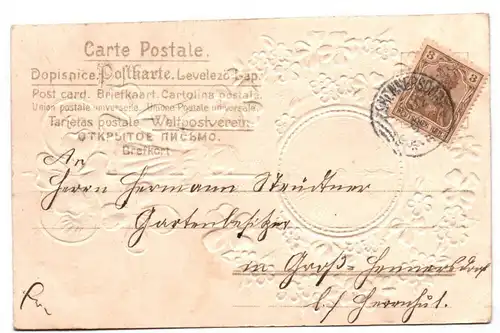 Carte Postale.
Dopisnice. Postkarte. Levelező Lap.
Post card. Briefkaart. Cartolina postale.
Union postale universelle. Unione Postale universale.
Tarjetas postale Weltpostverein.
ОТКРЫТОЕ ПИСЬМО.
Brefkort.
3 3
An
Herrn Hermann Steudtner
Gartenbesitzer
in Groß-Hennersdorf
b/ Herrnhut.